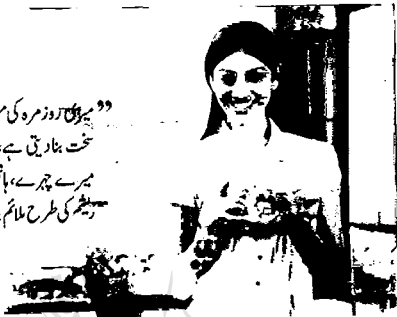 ”میری روزمرہ کی
سخت بنا دیتی ہے
میرے چہرے،
ریشم کی طرح ملائم